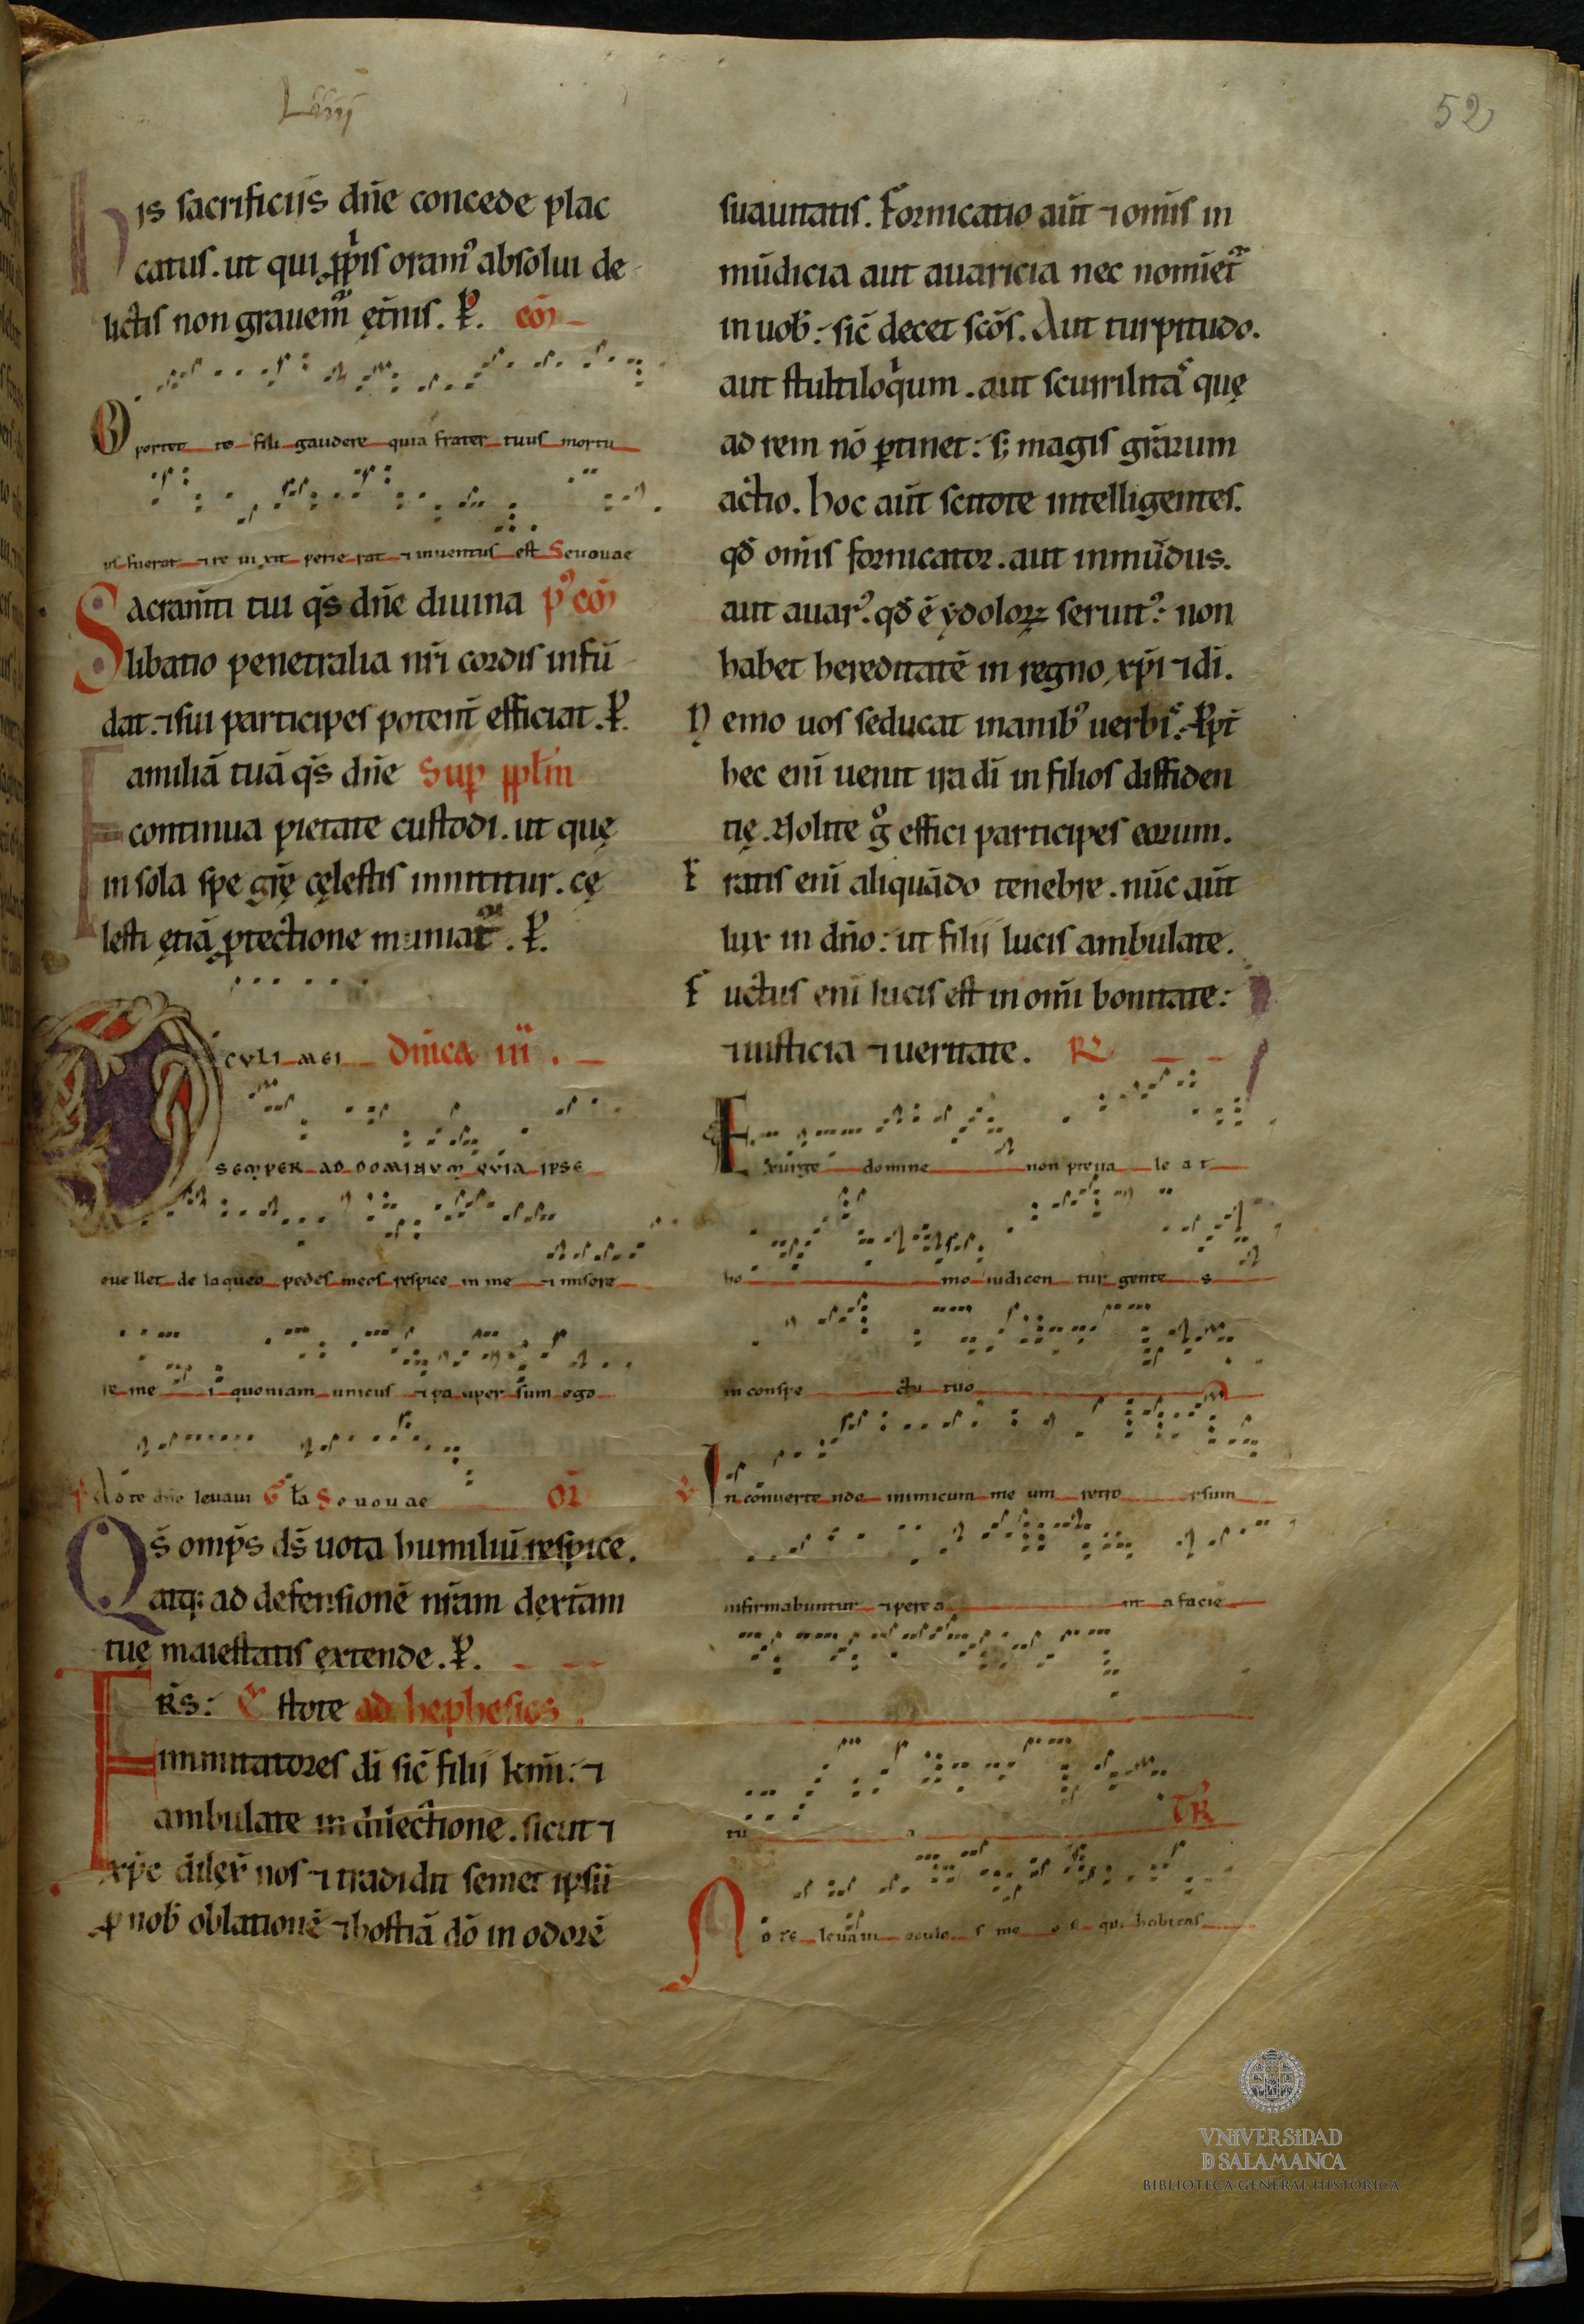 52
His sacrificiis dn̄e concede plac
catus. ut qui ꝓpriis oramꝰ absolui de
lictis non grauemur ęt̄nis. P. cō
Oportet te fili gaudere quia frater tuus mortu
us fuerat ⁊ re ui xit perie rat ⁊ inuentus est Seuouae
Sacram̄ti tui q̄s dn̄e diuina pꝰ cō
libatio penetralia nr̄i cordis infū
dat. ⁊ sui participes potent̄ efficiat. P.
Familiā tuā q̄s dn̄e Suꝑ ppl̄m
continua pietate custodi. ut quę
in sola spe gr̄ę cęlestis innititur. cę
lesti ętiā ꝓtectione muniat᷑. P.
OCULI MEI Dn̄ica iii.
SEMPER AD DOMINUM QUIA IPSE
euellet de laqueo pedes meos respice in me ⁊ misere
re me i quoniam unicus ⁊ pa uper sum ego
Ad te dn̄e leuaui Gła Seuouae OR̄
Qs̄ omp̄s ds̄ uota humiliū respice.
atq; ad defensionē nr̄am dext̄am
tuę maiestatis extende. P.
FR̄S: Estote ad hephesios.
imitatores dī sic̄ filii km̄i: ⁊
ambulate in dilectione. sicut ⁊
xp̄c dilex̄ nos ⁊ tradidit semet ipsū
ꝓ nob̄ oblationē ⁊ hostiā dō in odorē
suauitatis. Fornicatio aūt ⁊ om̄is in
mūdicia aut auaricia nec nomiet᷑
in uob̄: sic̄ decet scōs. Aut turpitudo.
aut stultiloqͥum. aut scurrilitas quę
ad rem nō ꝑtinet: s; magis gr̄arum
actio. Hoc aūt scitote intelligentes.
qđ om̄is fornicator. aut inmūdus.
aut auarꝰ. qđ ē ydoloꝝ seruitꝰ: non
habet hereditatē in regno xp̄i ⁊ dī.
Nemo uos seducat inanibꝰ uerbis. Ppt̄
hec enī uenit ira dī in filios diffiden
tię. Nolite gͦ effici participes eorum.
Eratis enī aliquādo tenebre. nūc aūt
lux in dn̄o: ut filii lucis ambulate.
Fructus enī lucis est in om̄i bonitate:
⁊ iusticia ⁊ ueritate. R
Exurge domine non preua le a t
ho mo iudicen tur gente s
in conspe ctu tuo
V In conuerte ndo inimicum me um retro rsum
infirmabuntur ⁊ pere a nt a facie
tu a TR
Ad te leuaui oculo s me o s qui habitas
VNIVERSIDAD
D SALAMANCA
BIBLIOTECA GENERAL HISTÓRICA